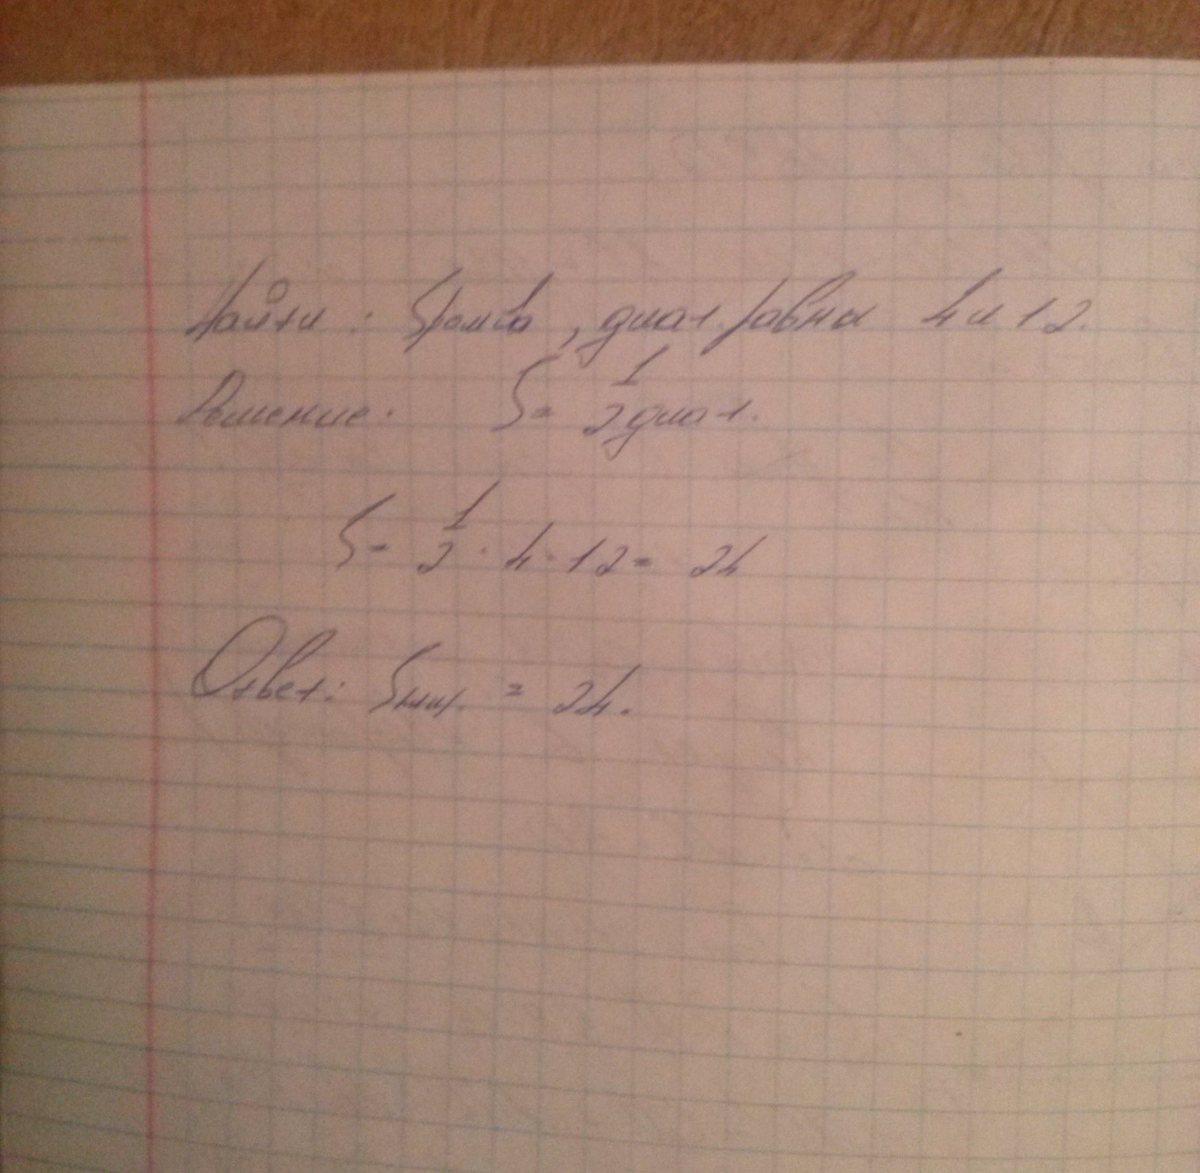 Найти: Sромба, диаг. равны 4 и 12.
Решение: S = 1/2 диаг.
S = 1/2 · 4 · 12 = 24
Ответ: S = 24.